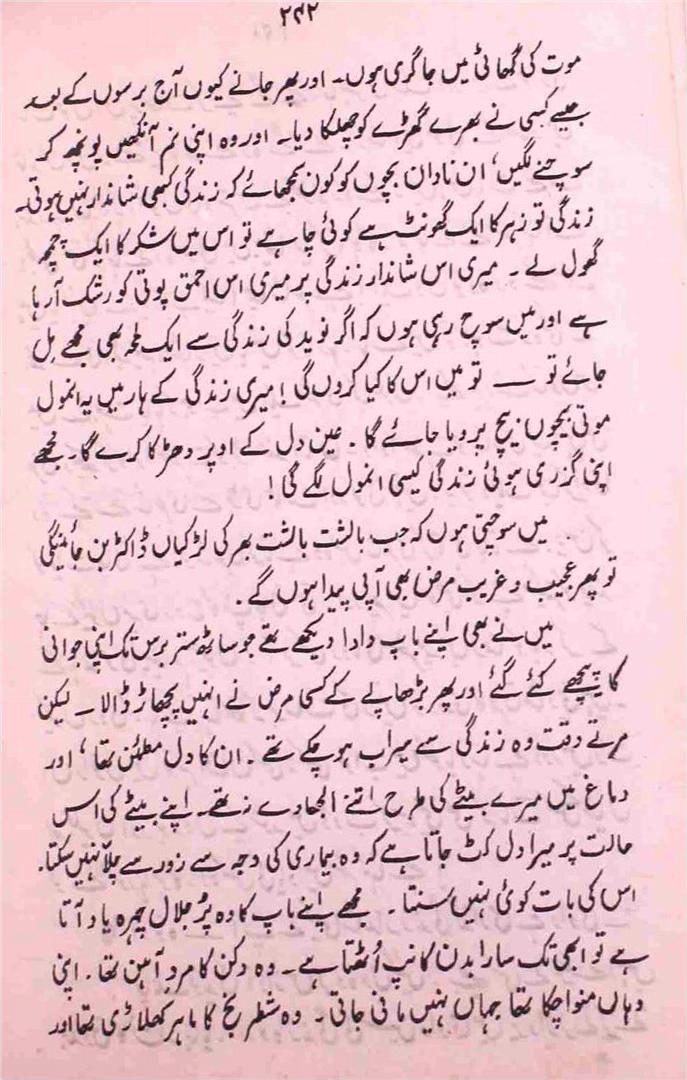 ۲۴۲
موت کی گھاٹی میں جاگری ہوں۔ اور پھر جانے کیوں آج برسوں کے بعد
جیسے کسی نے بھرے گھڑے کو چھلکا دیا۔ اور وہ اپنی نم آنکھیں پونچھ کر
سوچنے لگیں، ان نادان بچوں کو کون سمجھائے کہ زندگی کبھی شاندار نہیں ہوتی۔
زندگی تو زہر کا ایک گھونٹ ہے کوئی چاہے تو اس میں شکر کا ایک چمچہ
گھول لے۔ میری اس شاندار زندگی پر میری اس احمق پوتی کو رشک آ رہا
ہے اور میں سوچ رہی ہوں کہ اگر نوید کی زندگی سے ایک لمحہ بھی مجھے مل
جائے تو —— تو میں اس کا کیا کروں گی! میری زندگی کے ہار میں یہ انمول
موتی بیچوں بیچ پرویا جائے گا۔ عین دل کے اوپر دھڑکا کرے گا۔ مجھے
اپنی گزری ہوئی زندگی کیسی انمول لگے گی!
میں سوچتی ہوں کہ جب بالشت بالشت بھر کی لڑکیاں ڈاکٹر بن جائینگی
تو پھر عجیب و غریب مرض بھی آپی پیدا ہوں گے۔
میں نے بھی اپنے باپ دادا دیکھے تھے جو ساٹھ ستر برس تک اپنی جوانی
کا پیچھے کئے گئے اور پھر بڑھاپے کے کسی مرض نے انہیں پچھاڑ ڈالا۔ لیکن
مرتے وقت وہ زندگی سے سیراب ہو چکے تھے۔ ان کا دل مطمئن تھا، اور
دماغ میں میرے بیٹے کی طرح اتنے الجھاوے نہ تھے۔ اپنے بیٹے کی اس
حالت پر میرا دل کٹ جاتا ہے کہ وہ بیماری کی وجہ سے زور سے چلّا نہیں سکتا۔
اس کی بات کوئی نہیں سنتا۔ مجھے اپنے باپ کا وہ پُر جلال چہرہ یاد آتا
ہے تو ابھی تک سارا بدن کانپ اُٹھتا ہے۔ وہ دکن کا مردِ آہن تھا۔ اپنی
وہاں منوا چکا تھا جہاں نہیں مانی جاتی۔ وہ شطرنج کا ماہر کھلاڑی تھا اور